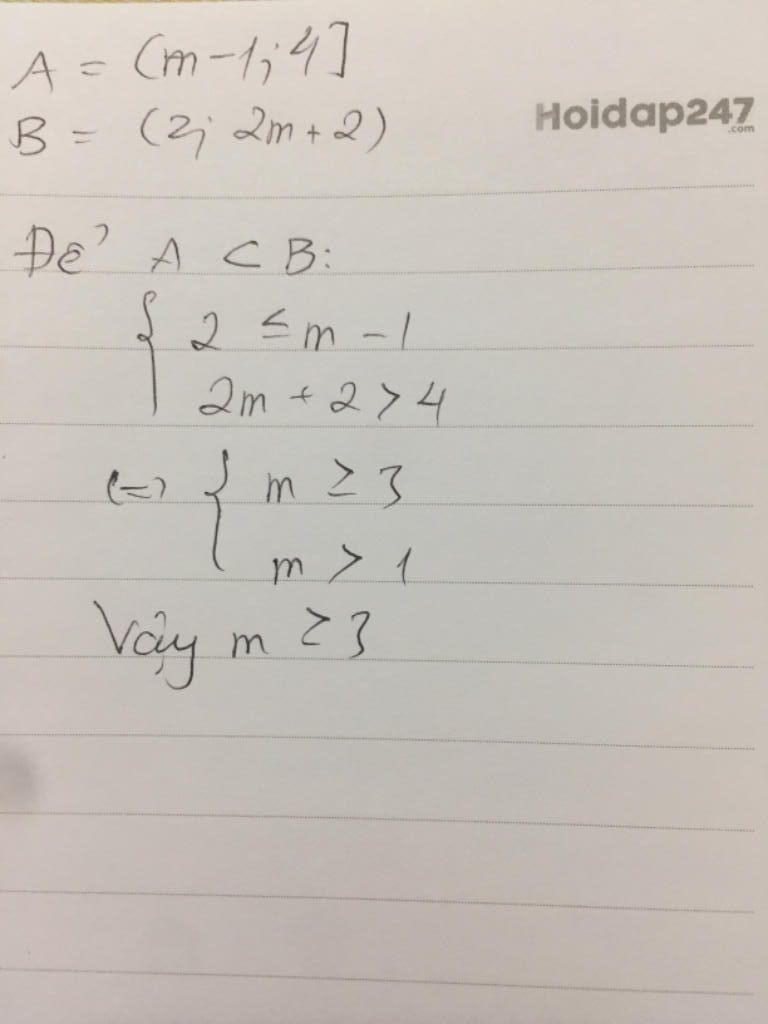 A = (m-1; 4]
B = (2; 2m+2)
Hoidap247
.com
Để A ⊂ B:
{ 2 ≤ m - 1
2m + 2 > 4
<=> { m ≥ 3
m > 1
Vậy m ≥ 3